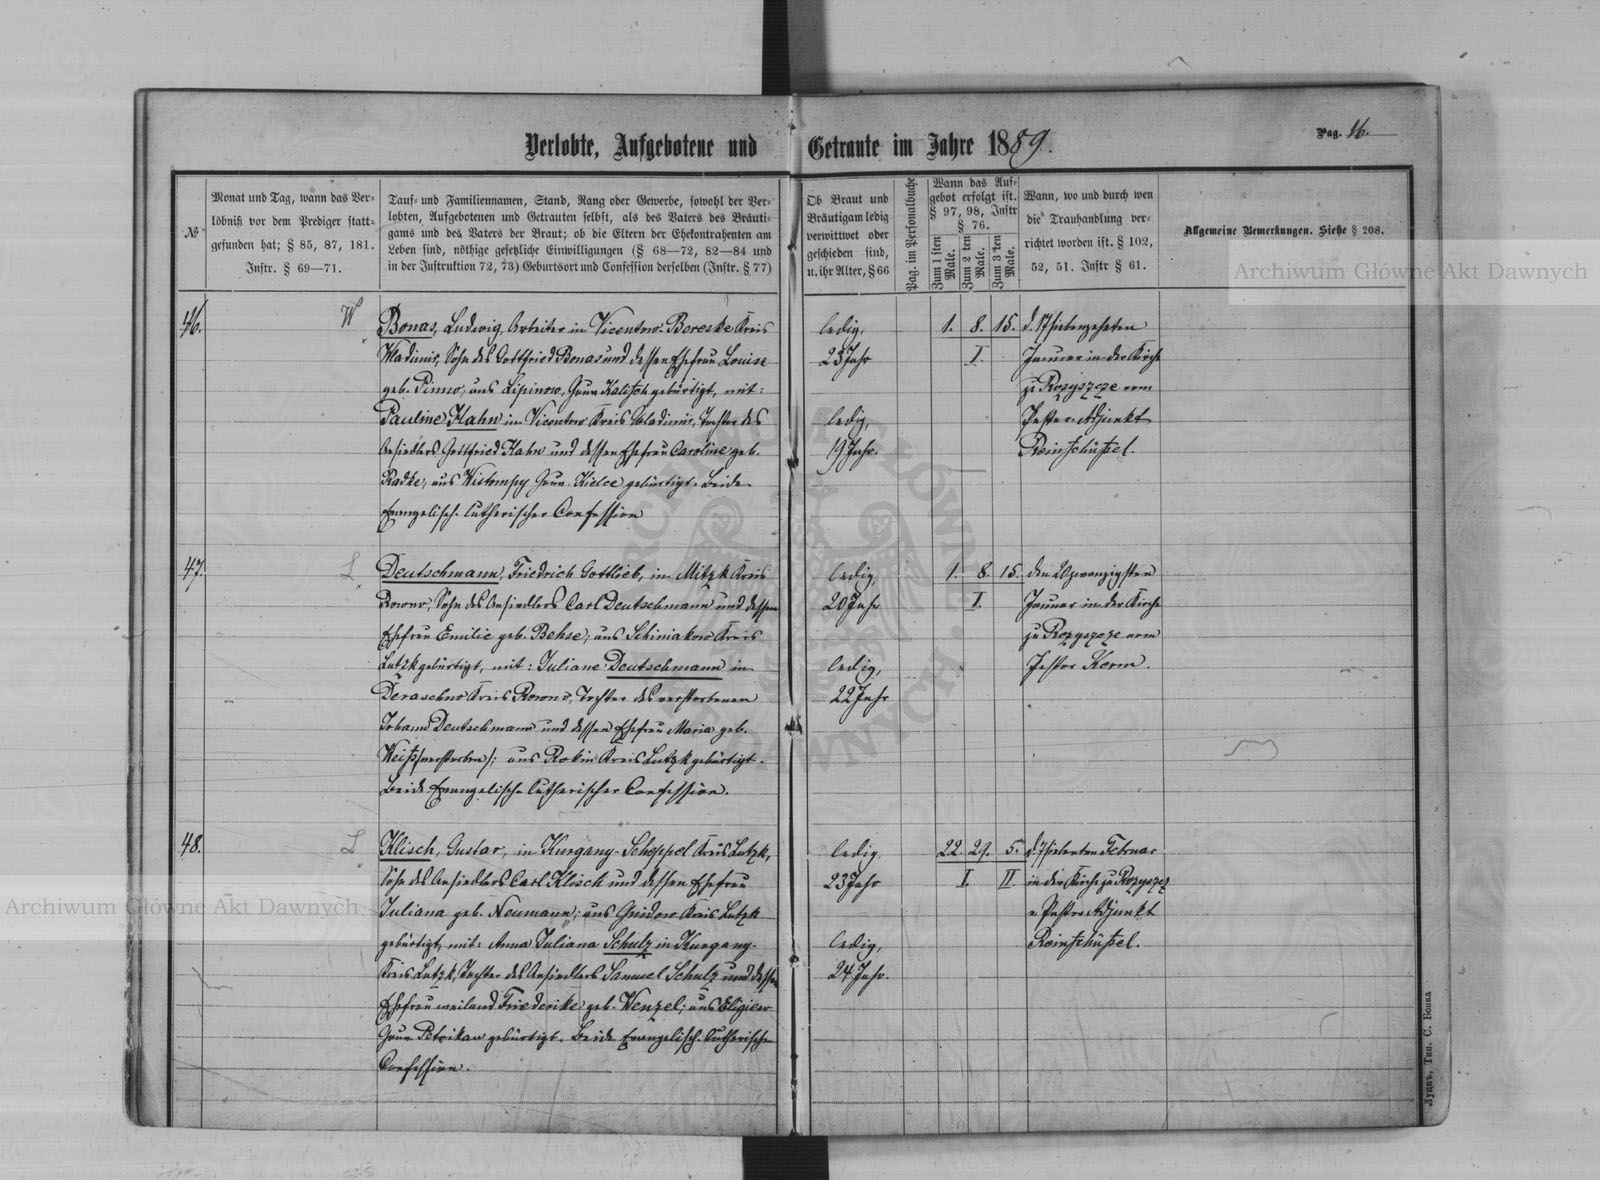 Verlobte, Aufgebotene und Getraute im Jahre 1889.
Pag. 16.
№
Monat und Tag, wann das Ver-
löbniß vor dem Prediger statt-
gefunden hat; § 85, 87, 181.
Instr. § 69—71.
Tauf- und Familiennamen, Stand, Rang oder Gewerbe, sowohl der Ver-
lobten, Aufgebotenen und Getrauten selbst, als des Vaters des Bräuti-
gams und des Vaters der Braut; ob die Eltern der Ehekontrahenten am
Leben sind, nöthige gesetzliche Einwilligungen (§ 68—72, 82—84 und
in der Instruktion 72, 73) Geburtsort und Confession derselben (Instr. § 77)
Ob Braut und
Bräutigam ledig
verwittwet oder
geschieden sind,
u. ihr Alter, § 66
Pag. im Personalbuche
Wann das Auf-
gebot erfolgt ist.
§ 97, 98, Instr
§ 76.
Zum 1 sten Male.
Zum 2 ten Male.
Zum 3 ten Male.
Wann, wo und durch wen
die Trauhandlung ver-
richtet worden ist. § 102,
52, 51. Instr § 61.
Allgemeine Bemerkungen. Siehe § 208.
Archiwum Główne Akt Dawnych
46.
W
Bonas, Ludwig, Arbeiter in Vicentow-Boreske Kreis
Wladimir, Sohn des Gottfried Bonas und dessen Ehefrau Louise
geb. Pinno, aus Lipinow, Gouv. Kalisch gebürtigt, mit:
Pauline Hahn in Vicentow Kreis Wladimir, Tochter des
Ansiedlers Gottfried Hahn und dessen Ehefrau Caroline geb.
Radke, aus Gouv. Kielce gebürtigt. Beide
Evangelisch-lutherischer Confession
ledig,
23 Jahr
ledig,
19 Jahr.
1. 8. 15.
I.
d. 17 siebenzehnten
Januar in der Kirche
zu Rozyszcze vom
Pastor-Adjunkt
Reintschüssel.
47.
L
Deutschmann, Friedrich Gottlieb, in Mitzk Kreis
Rowno, Sohn des Ansiedlers Carl Deutschmann und dessen
Ehefrau Emilie geb. Behse, aus Schiniakow Kreis
Lutzk gebürtigt, mit: Juliane Deutschmann in
Deraschno Kreis Rowno, Tochter des verstorbenen
Johann Deutschmann und dessen Ehefrau Maria geb.
Weiss (verstorben), aus Rokin Kreis Lutzk gebürtigt.
Beide Evangelisch-lutherischer Confession.
ledig
20 Jahr
ledig,
22 Jahr
1. 8. 15.
I.
den 20 zwanzigsten
Januar in der Kirche
zu Rozyszcze vom
Pastor Kerm.
48.
L
Klisch, Gustav, in Kurgany-Scheppel Kreis Lutzk,
Sohn des Ansiedlers Carl Klisch und dessen Ehefrau
Juliana geb. Neumann, aus Gnidow Kreis Lutzk
gebürtigt, mit: Anna Juliana Schulz in Kurgany
Kreis Lutzk, Tochter des Ansiedlers Samuel Schulz und dessen
Ehefrau weiland Friederike geb. Wenzel, aus Eligiew
Gouv. Petrikau gebürtigt. Beide Evangelisch-lutherischer
Confession.
ledig
23 Jahr
ledig,
24 Jahr.
22. 29. 5.
I. II
d. 7 siebenten Februar
in der Kirche zu Rozyszcz
v. Pastor-Adjunkt
Reintschüssel.
Archiwum Główne Akt Dawnych
Луцкъ, Тип. С. Бовка